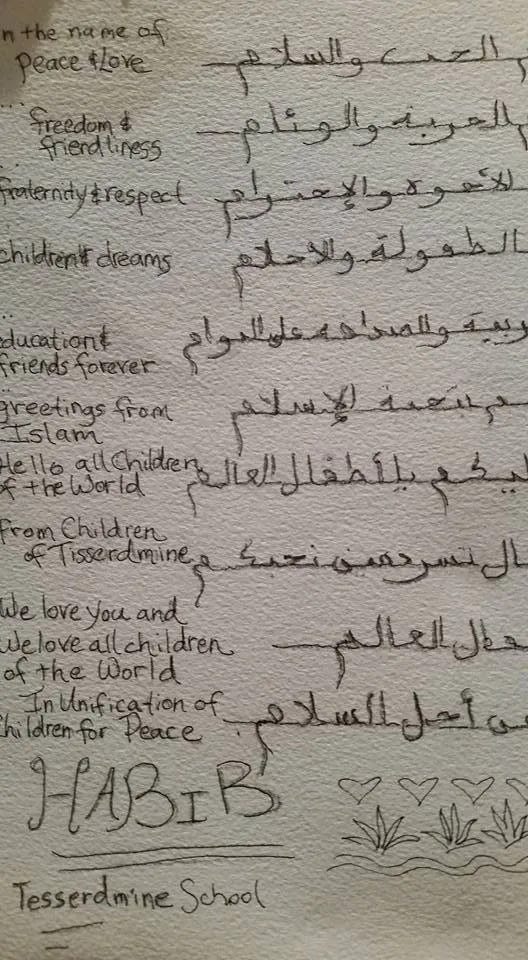 n the name of
Peace & Love
الحب والسلام
...
freedom &
friendliness
الحرية والوئام
...
fraternity & respect
الأخوة والإحترام
children & dreams
الطفولة والاحلام
...
ducation &
friends forever
والصداقة على الدوام
...
greetings from
Islam
بتحية الإسلام
Hello all Children
of the World
ليكم يا أطفال العالم
from Children
of Tisserdmine
ال تسردمين نحبكم
We love you and
We love all children
of the World
العالم
In Unification of
hildren for Peace
من أجل السلام
HABIB
Tesserdmine School